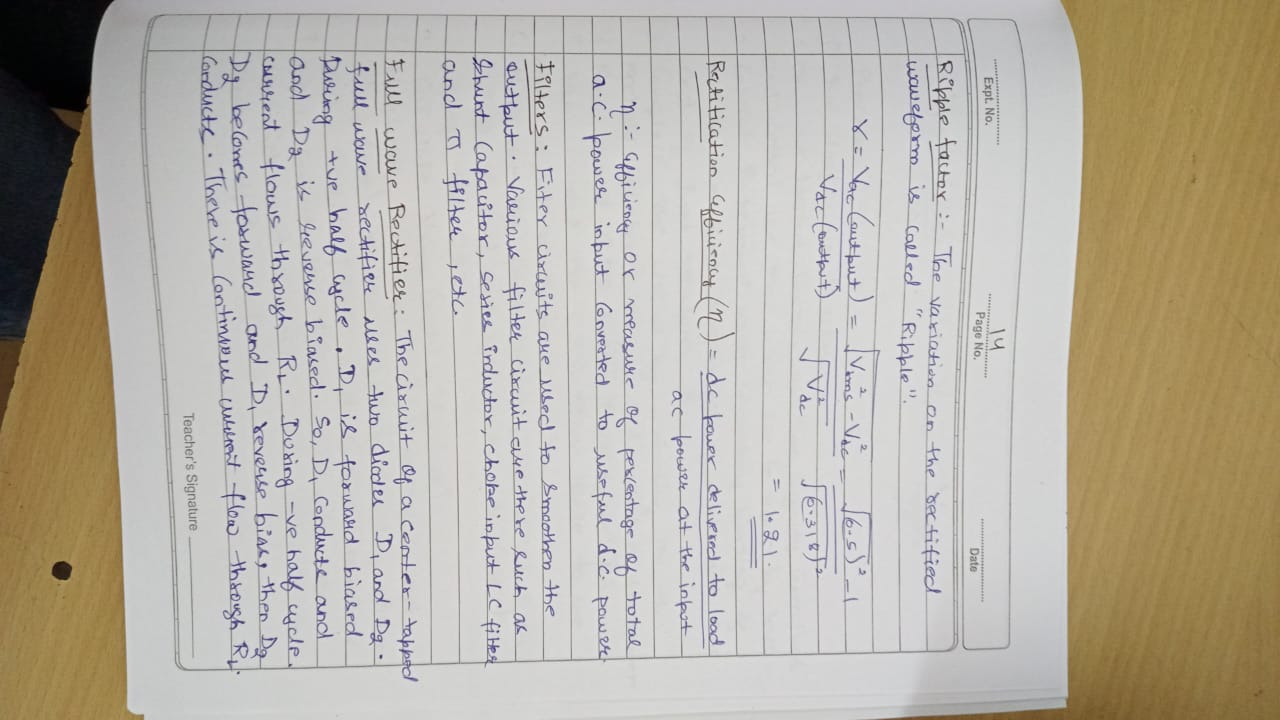 Expt. No. ............
14
Page No. ............
Date ............
Ripple factor :- The variation on the rectified
waveform is called "Ripple".
γ = Vac (output) / Vdc (output) = √Vrms² - Vdc² / √Vdc² = √(0.5)² - 1 / √(0.318)²
= 1.21.
Rectification efficiency (η) = dc power delivered to load
ac power at the input
η :- efficiency or measure of percentage of total
a.c. power input Converted to useful d.c. power.
Filters : Fiter circuits are used to smoothen the
output. Various filter circuit are there such as
Shunt Capacitor, series inductor, choke input LC filter
and π filter, etc.
Full wave Rectifier : The circuit of a center-tapped
full wave rectifier uses two diodes D1 and D2.
During +ve half cycle. D1 is forward biased
and D2 is reverse biased. So, D1 Conducte and
current flows through RL. During -ve half cycle.
D2 becomes forward and D1 reverse bias, then D2
Conducte. There is Continuous current flow through RL.
Teacher's Signature